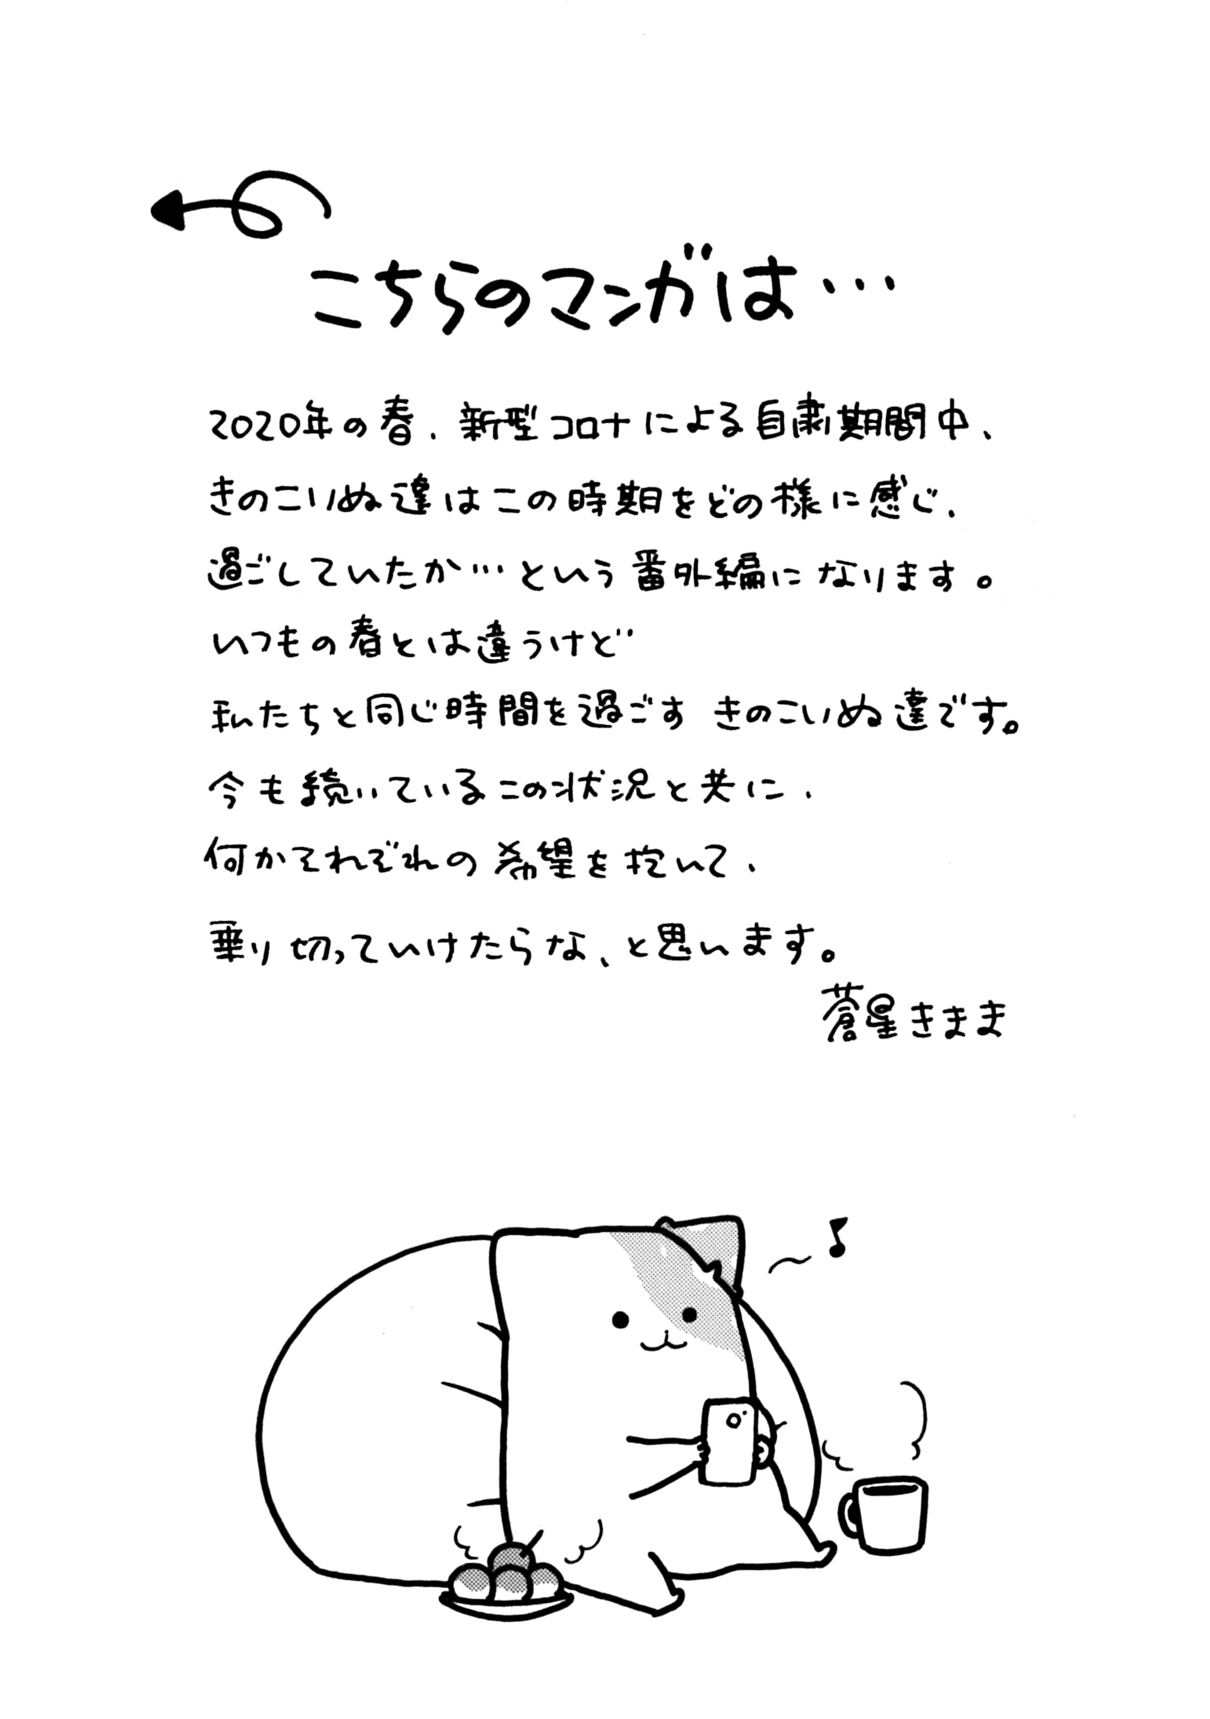 こちらのマンガは…
2020年の春、新型コロナによる自粛期間中、
きのこいぬ達はこの時期をどの様に感じ、
過ごしていたか…という番外編になります。
いつもの春とは違うけど
私たちと同じ時間を過ごすきのこいぬ達です。
今も続いているこの状況と共に、
何かそれぞれの希望を抱いて、
乗り切っていけたらな、と思います。
蒼星きまま